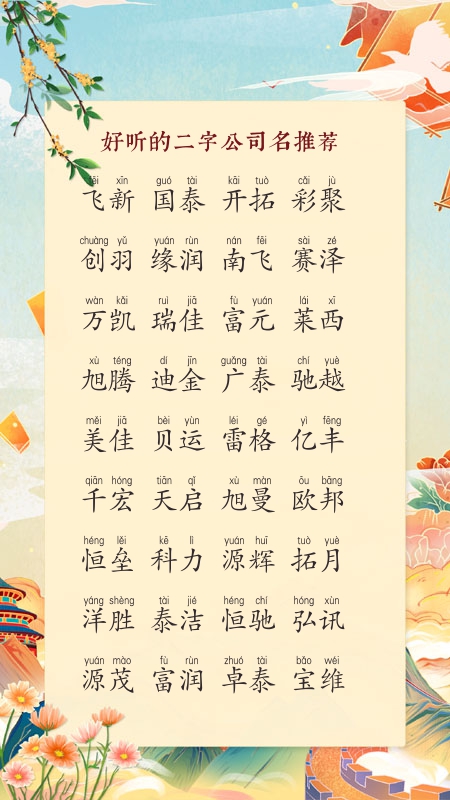 好听的二字公司名推荐
fēi xīn guó tài kāi tuò cǎi jù
飞新 国泰 开拓 彩聚
chuàng yǔ yuán rùn nán fēi sài zé
创羽 缘润 南飞 赛泽
wàn kǎi rui jiā fù yuán lái xī
万凯 瑞佳 富元 莱西
xù téng dí jīn guǎng tài chí yuè
旭腾 迪金 广泰 驰越
měi jiā bèi yùn léi gé yì fēng
美佳 贝运 雷格 亿丰
qiān hóng tiān qǐ xù màn ōu bāng
千宏 天启 旭曼 欧邦
héng lěi kē lì yuán huī tuò yuè
恒垒 科力 源辉 拓月
yáng shèng tài jié héng chí hóng xùn
洋胜 泰洁 恒驰 弘讯
yuán mào fù rùn zhuó tài bǎo wéi
源茂 富润 卓泰 宝维